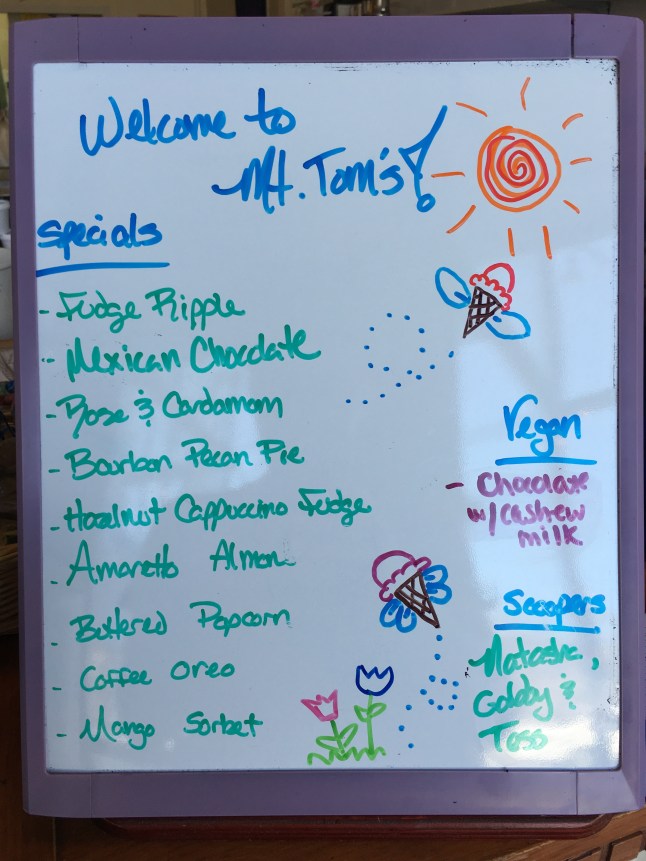 Welcome to
Mt. Tom's!
Specials
- Fudge Ripple
- Mexican Chocolate
- Rose & Cardamom
- Bourbon Pecan Pie
- Hazelnut Cappuccino Fudge
- Amaretto Almond
- Buttered Popcorn
- Coffee Oreo
- Mango Sorbet
Vegan
- Chocolate
w/cashew
milk
Scoopers
Natasha,
Goldy &
Tess